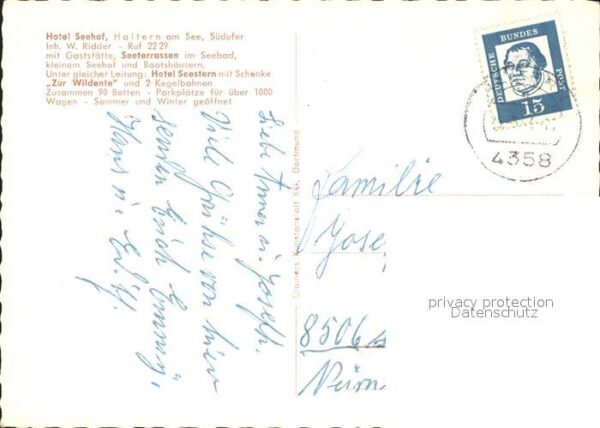 Hotel Seehof, Haltern am See, Südufer
Inh. W. Ridder - Ruf 22 29
mit Gaststätte, Seeterrassen im Seebad,
kleinem Seehof und Bootshäusern.
Unter gleicher Leitung: Hotel Seestern mit Schenke
„Zur Wildente" und 2 Kegelbahnen
Zusammen 90 Betten - Parkplätze für über 1000
Wagen - Sommer und Winter geöffnet
DEUTSCHE BUNDESPOST
15
4358
Cramers Kunstanstalt KG, Dortmund
Liebe Anna u. Joseph.
Viele Grüße von hier
senden Euch
Hans u.
Familie
Jose
8506
privacy protection
Datenschutz